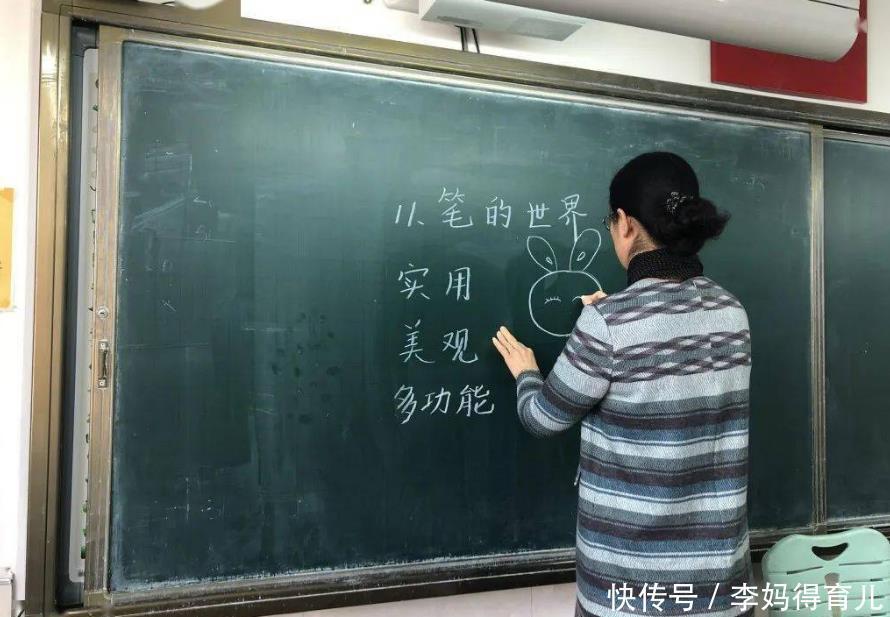 11、笔的世界
实用
美观
多功能
快传号 / 李妈得育儿